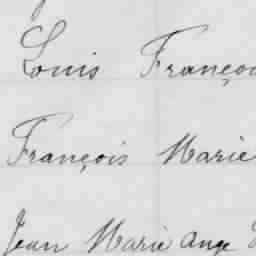 Louis Françoi
François Marie
Jean Marie Ange